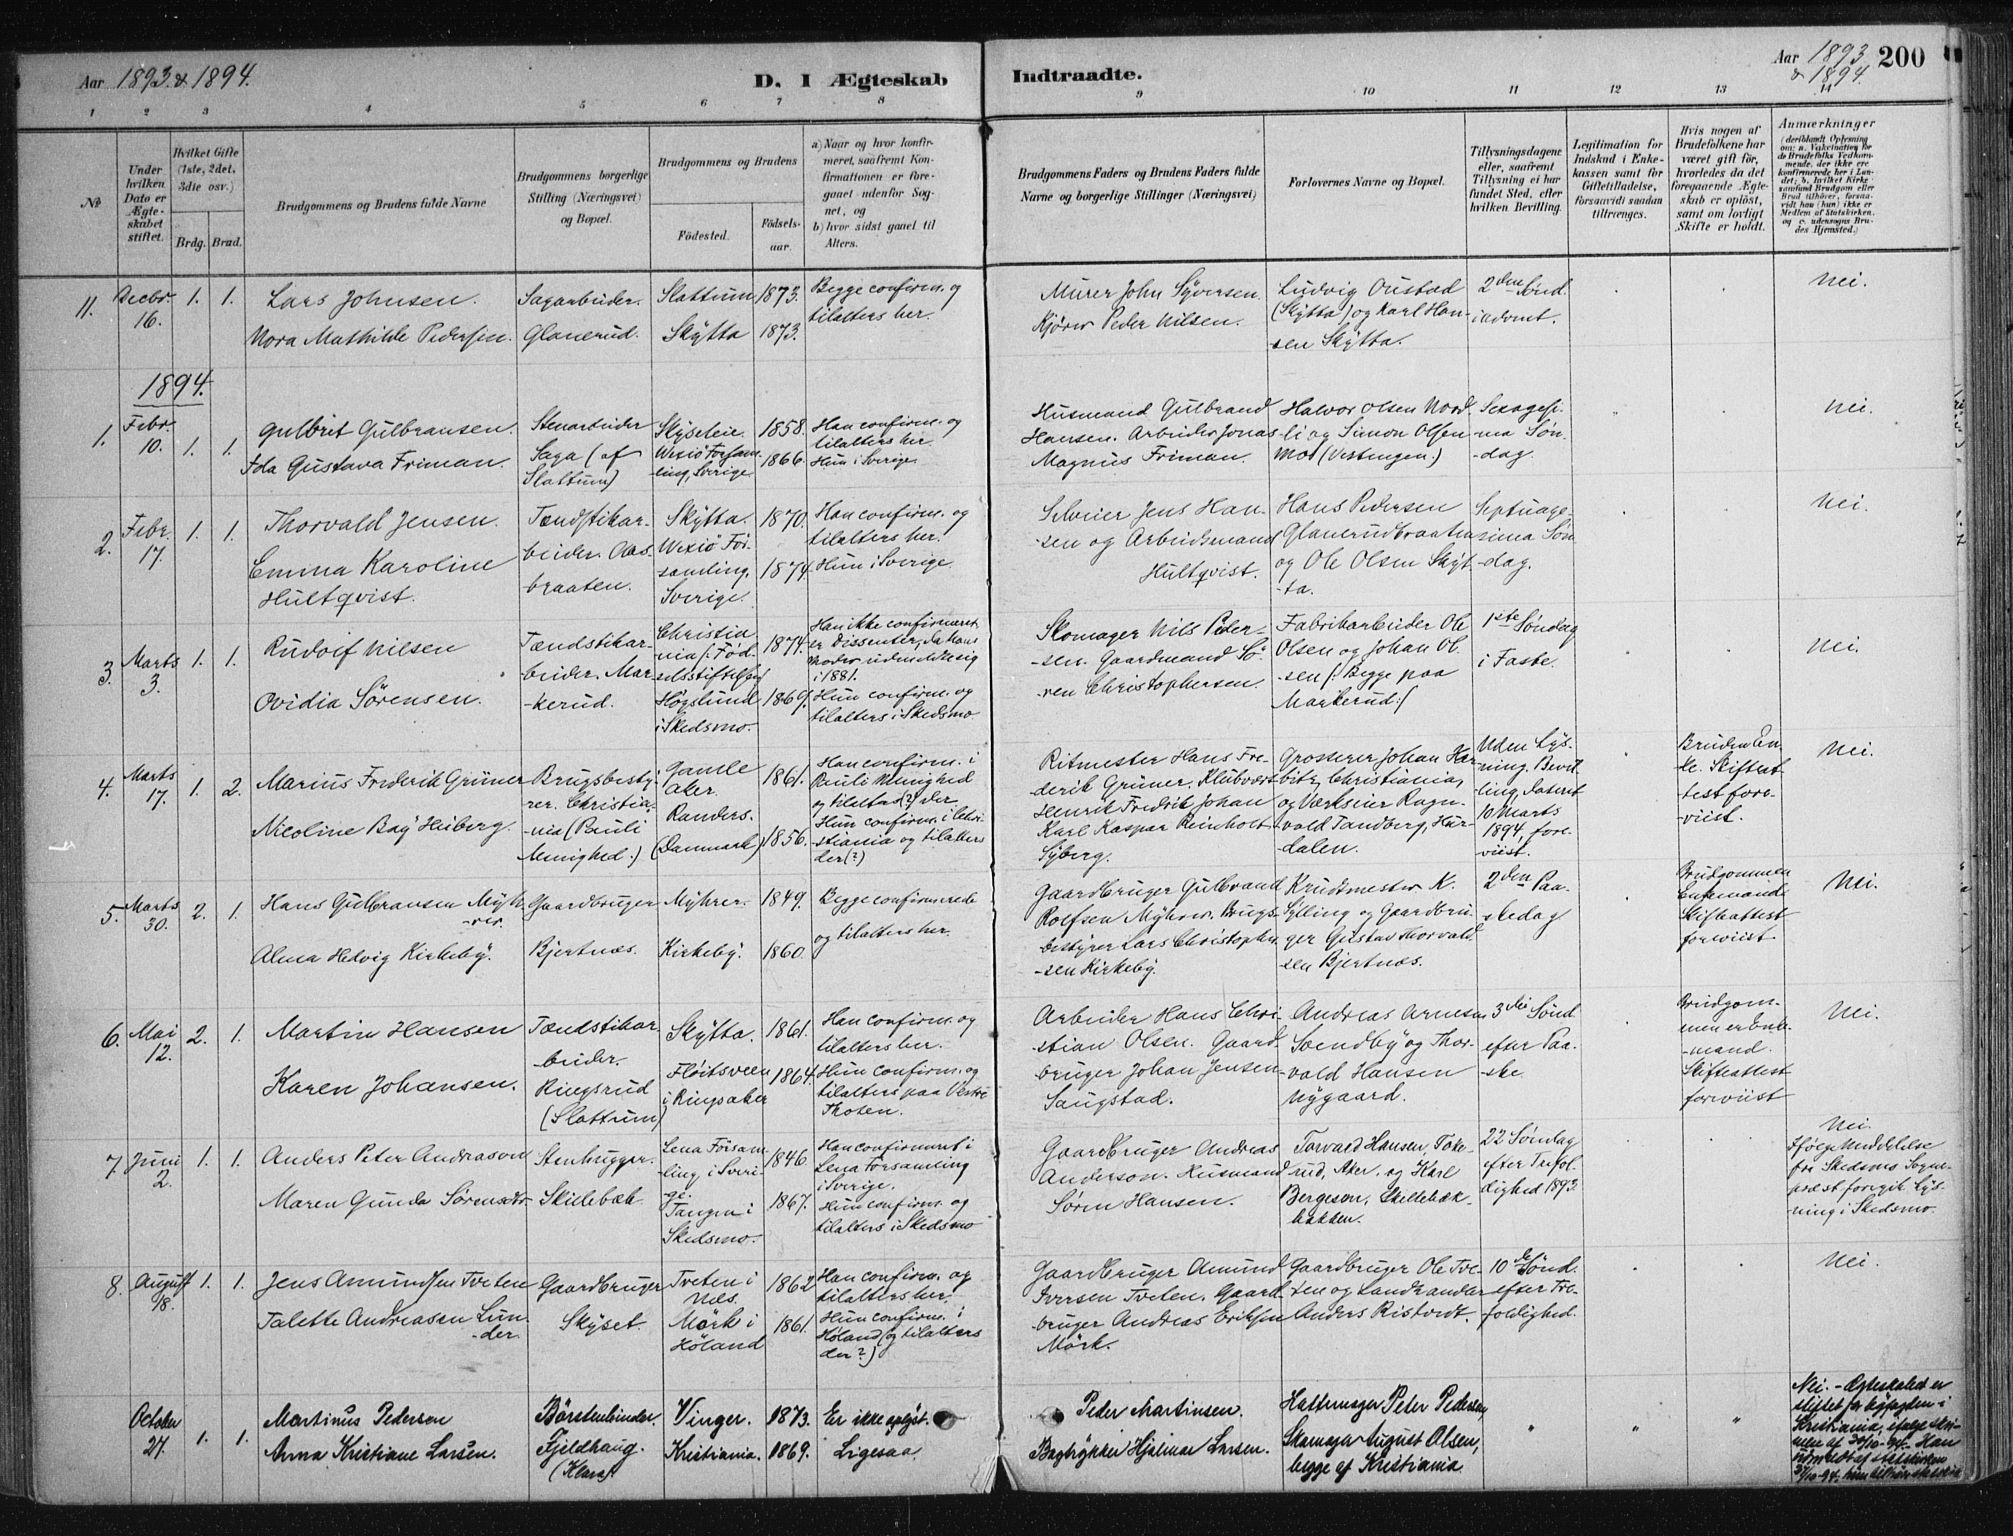 Aar 1893 & 1894.
D. I Ægteskab
Indtraadte.
Aar 1893 & 1894.
200
1 2 3 4 5 6 7 8 9 10 11 12 13 14
No
Under hvilken Dato er Ægteskabet stiftet.
Hvilket Gifte (1ste, 2det, 3die osv.)
Brdg. Brud.
Brudgommens og Brudens fulde Navne
Brudgommens borgerlige Stilling (Næringsvei) og Bopæl.
Brudgommens og Brudens
Fødested.
Fødselsaar.
a) Naar og hvor konfirmeret, saafremt Konfirmationen er foregaaet udenfor Sognet, og
b) hvor sidst gaaet til Alters.
Brudgommens Faders og Brudens Faders fulde Navne og borgerlige Stillinger (Næringsvei)
Forlovernes Navne og Bopæl.
Tillysningsdagene eller, saafremt Tillysning ei har fundet Sted, efter hvilken Bevilling.
Legitimation for Indskud i Enkekassen samt for Giftetilladelse, forsaavidt saadan tiltrænges.
Hvis nogen af Brudefolkene har været gift før, hvorledes da det foregaaende Ægteskab er opløst, samt om lovligt Skifte er holdt.
Anmærkninger (deriblandt Oplysning om: a. Vaksination for de Brudefolks Vedkommende, der ikke ere konfirmerede her i Landet; b. hvilket Kirkesamfund Brudgom eller Brud tilhører, forsaavidt han (hun) ikke er Medlem af Statskirken, og c. udensogns Brudes Hjemsted.)
11. Decbr. 16. 1. 1.
Lars Johnsen.
Nora Mathilde Pedersen.
Sagarbeider. Glanerud.
Slattum 1873.
Skytta 1873.
Begge confirm. og tilalters her.
Murer John Syversen.
Kjører Peder Nilsen.
Ludvig Oustad (Skytta) og Karl Hansen Skytta.
2den Sønd. i advent.
Nei.
1894.
1. Febr. 10. 1. 1.
Gulbrit Gulbransen.
Ida Gustava Friman.
Stenarbeider Saga (af Slattum)
Skyseteie 1858.
Wexiö Forsamling, Sverige 1866.
Han confirm. og tilalters her.
Hun i Sverige.
Husmand Gulbrand Hansen. Arbeider Jonas Magnus Friman.
Halvor Olsen Nordli og Simon Olsen Moe (Vestengen.)
Sexagesima Søndag.
Nei.
2. Febr. 17. 1. 1.
Thorvald Jensen.
Emma Karoline Hultqvist.
Tændstikarbeider. Olasbraaten.
Skytta. 1870.
Wexiö Församling, Sverige. 1874
Han confirm. og tilalters her.
Hun i Sverige.
Selveier Jens Hansen og Arbeidsmand Hultqvist.
Hans Pedersen Glanerudbraaten og Ole Olsen Skytta.
Septuagesima Søndag.
Nei.
3. Marts 3. 1. 1.
Rudolf Nilsen
Ovidia Sørensen.
Tændstikarbeider. Markerud.
Christiania (: Fødselsstiftelsen) 1874.
Høgslund i Skedsmo. 1869.
Han ikke confirmeret, er Dissenter, da hans Moder udmeldte sig i 1881.
Hun confirm. og tilalters i Skedsmo
Skomager Nils Pedersen. Gaardmand Søren Christophersen.
Fabrikarbeider Ole Olsen og Johan Olsen (: Begge paa Markerud :)
1ste Søndag i Faste.
Nei.
4. Marts 17. 1. 2.
Marius Frederik Grüner
Nicoline Bay Heiberg.
Brugsbestyrer. Christiania (Pauli Menighed :)
Gamle Aker. 1861.
Randers. (Danmark) 1856.
Han confirm. i Pauli Menighed og tilalters(?) der.
Hun confirm. i Christiania og tilalters der(?)
Ritmester Hans Frederik Grüner. Klubvært Henrik Fredrik Johan Karl Kaspar Reinholt Syberg.
Grosserer Johan Harbitz, Christiania, og Værkseier Ragnvald Tandberg, Hurdalen.
Uden Lysning. Bevilling, dateret 10 Marts 1894, foreviist.
Bruden Enke. Skifteattest foreviist.
Nei.
5. Marts 30. 2. 1.
Hans Gulbransen Myhrer.
Alma Hedvig Kirkeby.
Gaardbruger Bjertnæs.
Myhrer. 1849.
Kirkeby. 1860.
Begge confirmerede og tilalters her.
Gaardbruger Gulbrand Rolfsen Myhrer. Brugsbestyrer Lars Christophersen Kirkeby.
Krudtmester K. Sylling og Gaardbruger Gustav Thorvaldsen Bjertnæs.
2den Paaskedag
Brudgommen Enkemand. Skifteattest foreviist.
Nei.
6. Mai 12. 2. 1.
Martin Hansen
Karen Johansen.
Tændstikarbeider. Ringsrud (Slattum)
Skytta. 1861.
Fløitsveen i Ringsaker 1864.
Han confirm. og tilalters her.
Hun confirm. og tilalters paa Vestre Thoten.
Arbeider Hans Christian Olsen. Gaardbruger Johan Jensen Saugstad.
Andreas Arnesen Sændby og Thorvald Hansen Nygaard.
3die Sønd efter Paaske.
Brudgommen er Enkemand. Skifteattest foreviist
Nei.
7. Juni 2. 1. 1.
Anders Peter Andrason
Maren Gunda Sørensdr.
Stenhugger. Skillebæk.
Lena Församling i Sverige. 1846
Tangen i Skedsmo. 1867.
Han confirmeret i Lena Församling i Sverige.
Hun confirm. og tilalters i Skedsmo
Gaardbruger Andreas Anderson. Husmand Sørin Hansen.
Torvald Hansen, Tokerud, Aker. og Karl Bergeson, Skillebækbakken.
22 Søndag efter Trefoldighed 1893.
Nei. Ifølge Meddelelse fra Skedsmo Sognepræst foregik Lysning i Skedsmo.
8. August 18. 1. 1.
Jens Amundsen Tveten
Talette Andreasen Lunder.
Gaardbruger Skyset.
Tveten i Næs. 1862
Mørk i Høland 1861.
Han confirm. og tilalters her.
Hun confirm. i Høland (og tilalters der?)
Gaardbruger Amund Iversen Tveten. Gaardbruger Andreas Eriksen Mørk.
Gaardbruger Ole Tveten og Landhandler Anders Ristvedt.
10de Sønd. efter Trefoldighed.
Nei.
October 27. 1. 1.
Martinus Pedersen
Anna Kristiane Larsen.
Børstenbinder. Fjeldhaug. (Klara)
Vinger. 1873.
Kristiania. 1869.
Er ikke oplyst.
Ligesaa.
Peder Martinsen.
Bogtrykker Hjalmar Larsen.
Hattemager Peter Pedersen, Skomager August Olsen, begge af Kristiania
Nei. – Ægteskabet er stiftet for byfogden i Kristiania, ifølge skrivelse af 30/10-94. Han udmeldt af statskirken